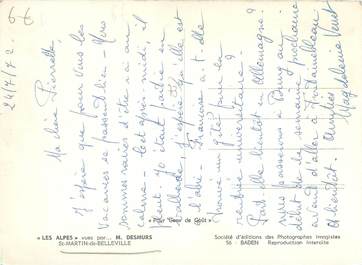 24/7/72.
Ma chère Pierrette,
J'espère que pour vous les
vacances se passent bien - Nous
sommes ravies d'être ici au
calme - Cet après-midi, il
pleut. Jo était partie en
ballade, j'espère qu'elle est
à l'abri - Françoise a-t-elle
trouvé un gîte pour la
rentrée universitaire ?
Part-elle bientôt en Allemagne ?
Nous passerons à Bourg au
début de la semaine prochaine
avant d'aller à Fontainebleau.
A bientôt. Amitiés
Magdeleine
« Pour Gens de Goût »
« LES ALPES » vues par... M. DESMURS
St-MARTIN-de-BELLEVILLE
Société d'éditions des Photographes Imagistes
56 - BADEN Reproduction interdite